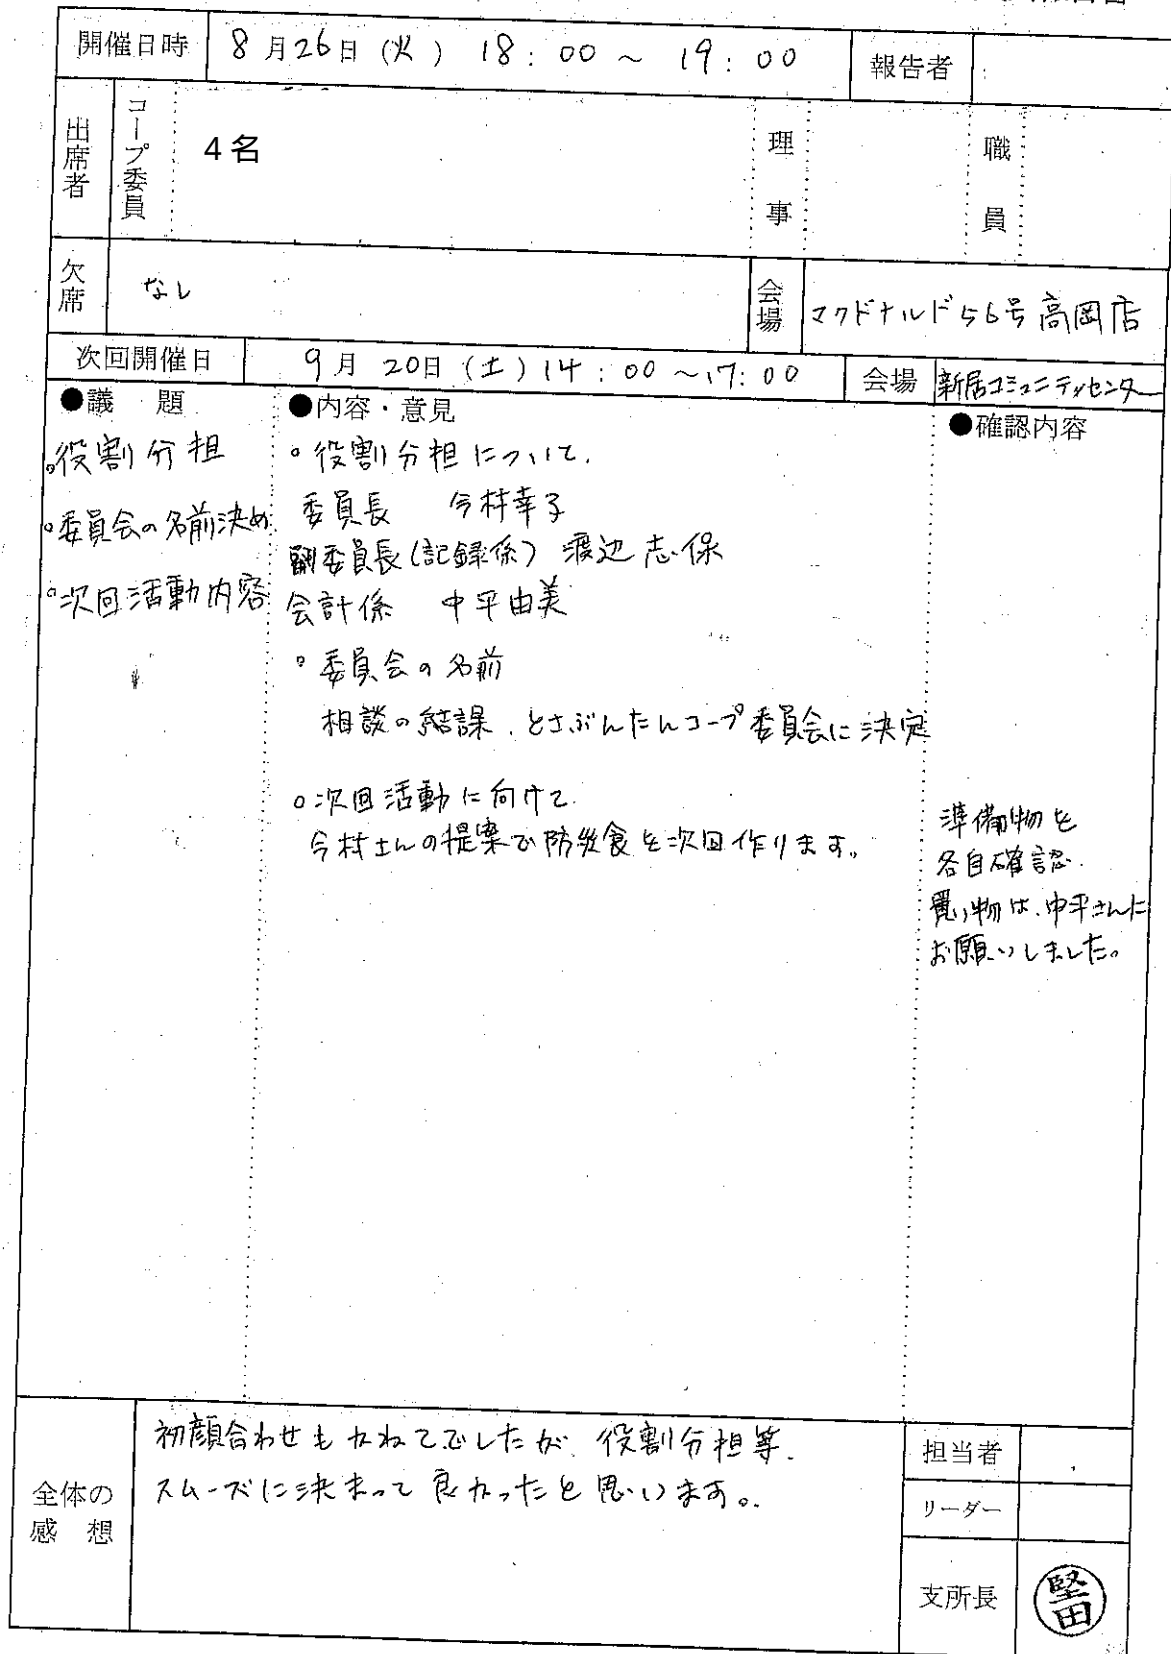 開催日時 8月26日(火) 18:00～19:00 報告者
出席者 コープ委員 4名 理事 職員
欠席 なし 会場 マクドナルド56号高岡店
次回開催日 9月20日(土)14:00～17:00 会場 新居コミュニティセンター
●議 題 ●内容・意見 ●確認内容
。役割分担
。委員会の名前決め
。次回活動内容
。役割分担について.
委員長 今村幸子
副委員長(記録係) 渡辺志保
会計係 中平由美
。委員会の名前
相談の結課、とさぶんたんコープ委員会に決定
。次回活動に向けて
今村さんの提案で防災食を次回作ります。
準備物を
各自確認.
買い物は、中平さんに
お願いしました。
全体の感想
初顔合わせもかねてでしたが、役割分担等.
スムーズに決まって良かったと思います。
担当者
リーダー
支所長 堅田